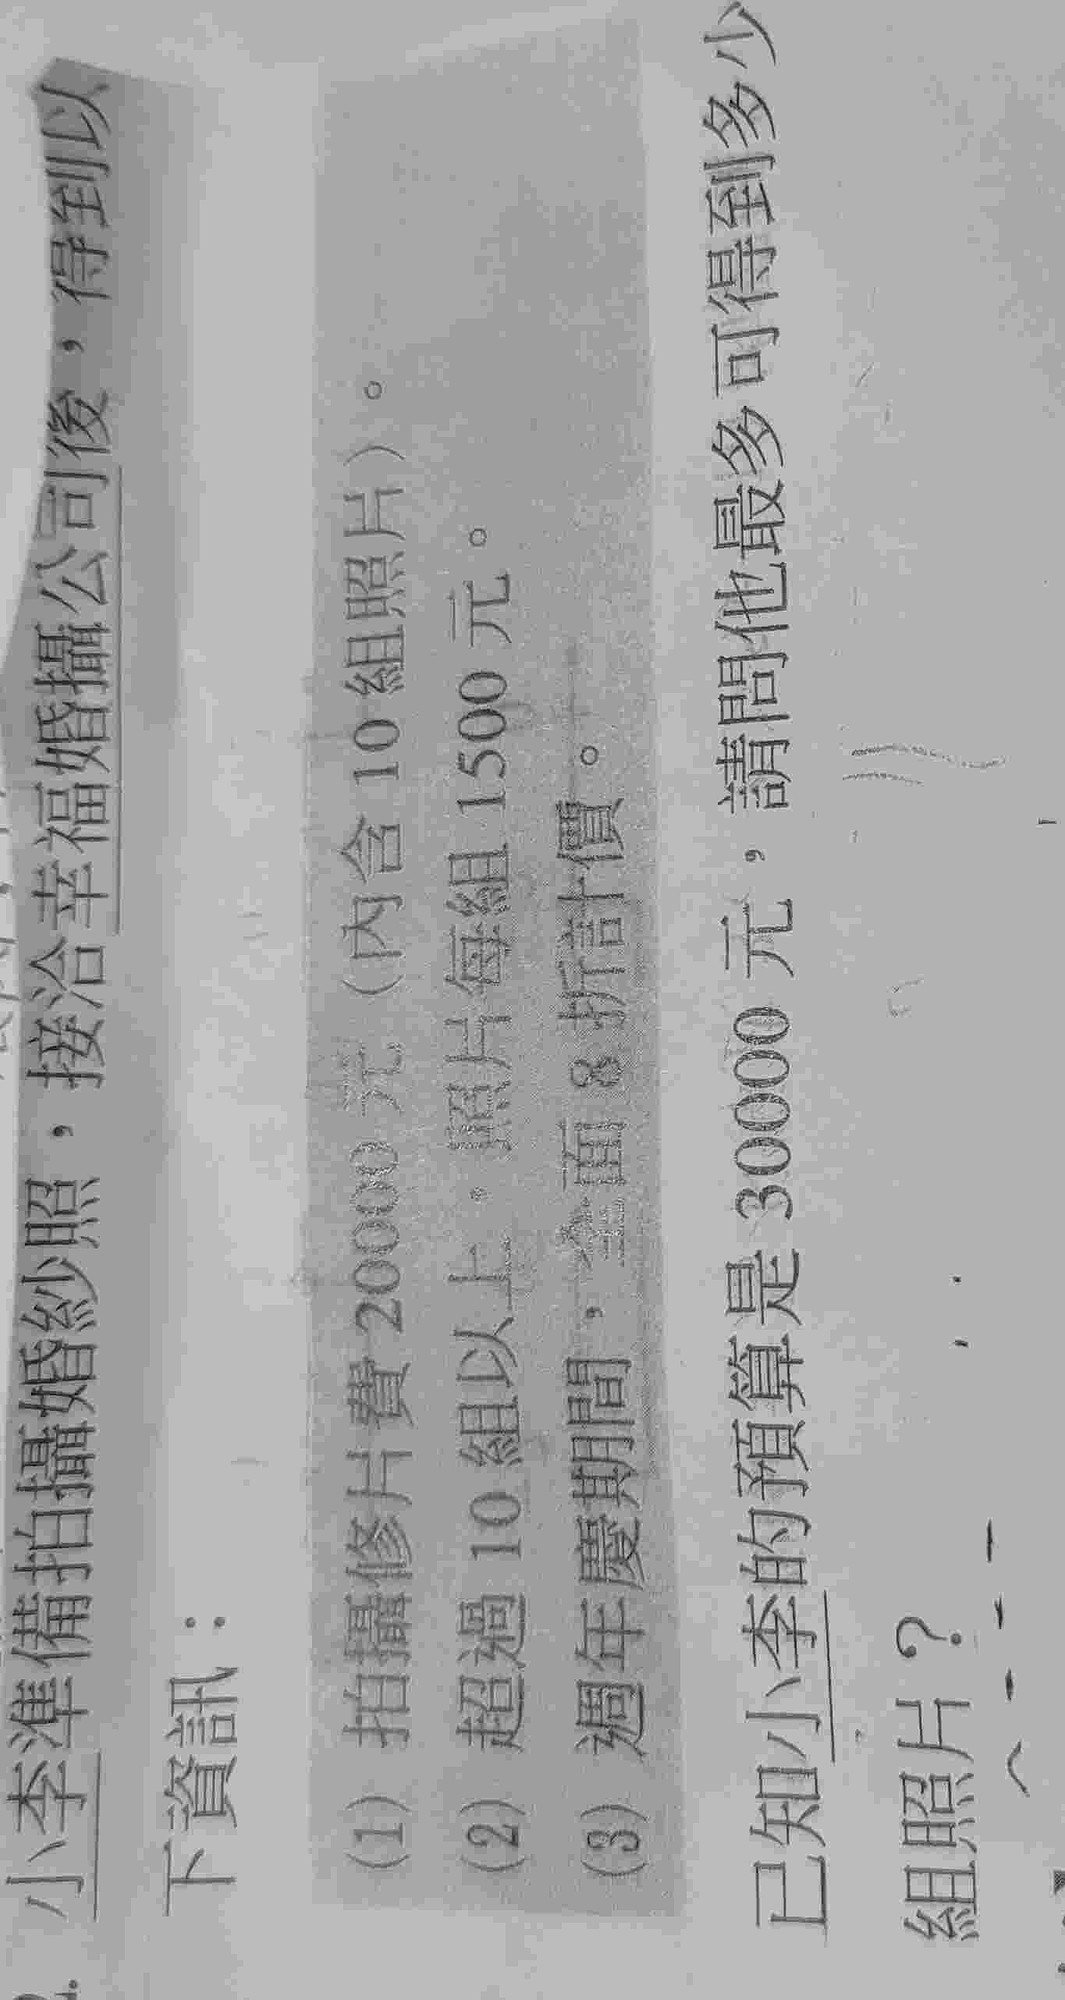 小李準備拍攝婚紗照，接洽幸福婚攝公司後，得到以
下資訊：
(1) 拍攝修片費 20000 元（內含 10 組照片）。
(2) 超過 10 組以上，照片每組 1500 元。
(3) 週年慶期間，全面 8 折計價。
已知小李的預算是 30000 元，請問他最多可得到多少
組照片？